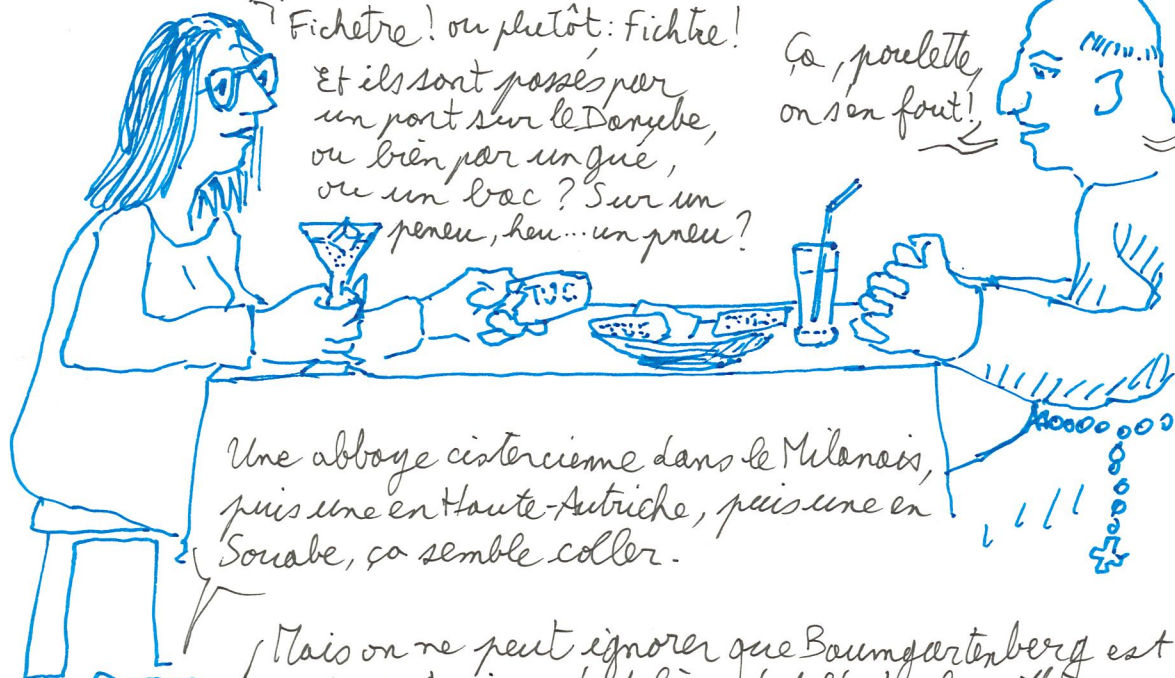 Fichetre! ou plutôt: fichtre!
Et ils sont passés par
un pont sur le Danube,
ou bien par un gué,
ou un bac? Sur un
peneu, heu...un pneu?
Ça, poulette,
on s'en fout!
TUC
Une abbaye cistercienne dans le Milanais,
puis une en Haute-Autriche, puis une en
Souabe, ça semble coller.
Mais on ne peut ignorer que Baumgartenberg est